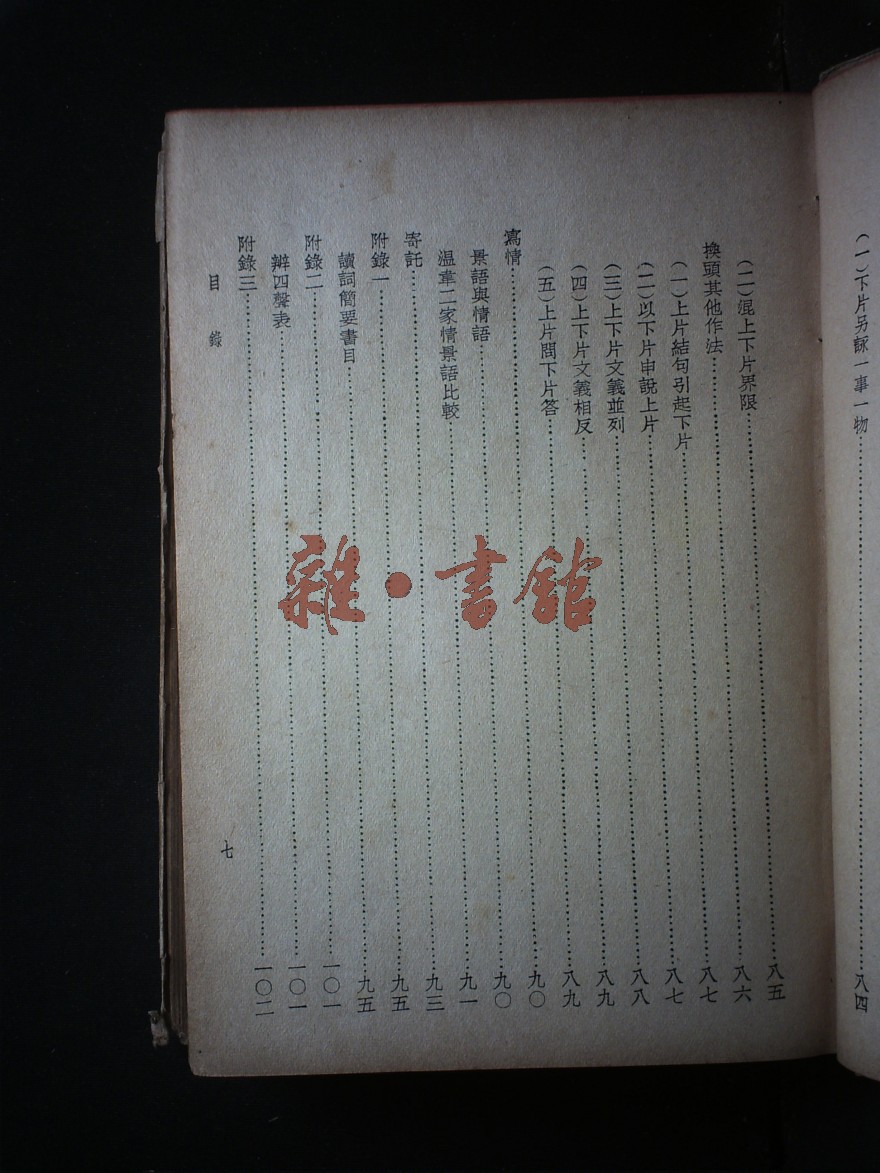 (一)下片另詠一事一物……八四
(二)混上下片界限……八五
換頭其他作法……八六
(一)上片結句引起下片……八七
(二)以下片申說上片……八七
(三)上下片文義並列……八八
(四)上下片文義相反……八九
(五)上片問下片答……八九
寫情……九〇
景語與情語……九〇
溫韋二家情景語比較……九一
寄託……九三
附錄一……九五
讀詞簡要書目……九五
附錄二……一〇一
辨四聲表……一〇一
附錄三……一〇二
目錄
七
雜·書館